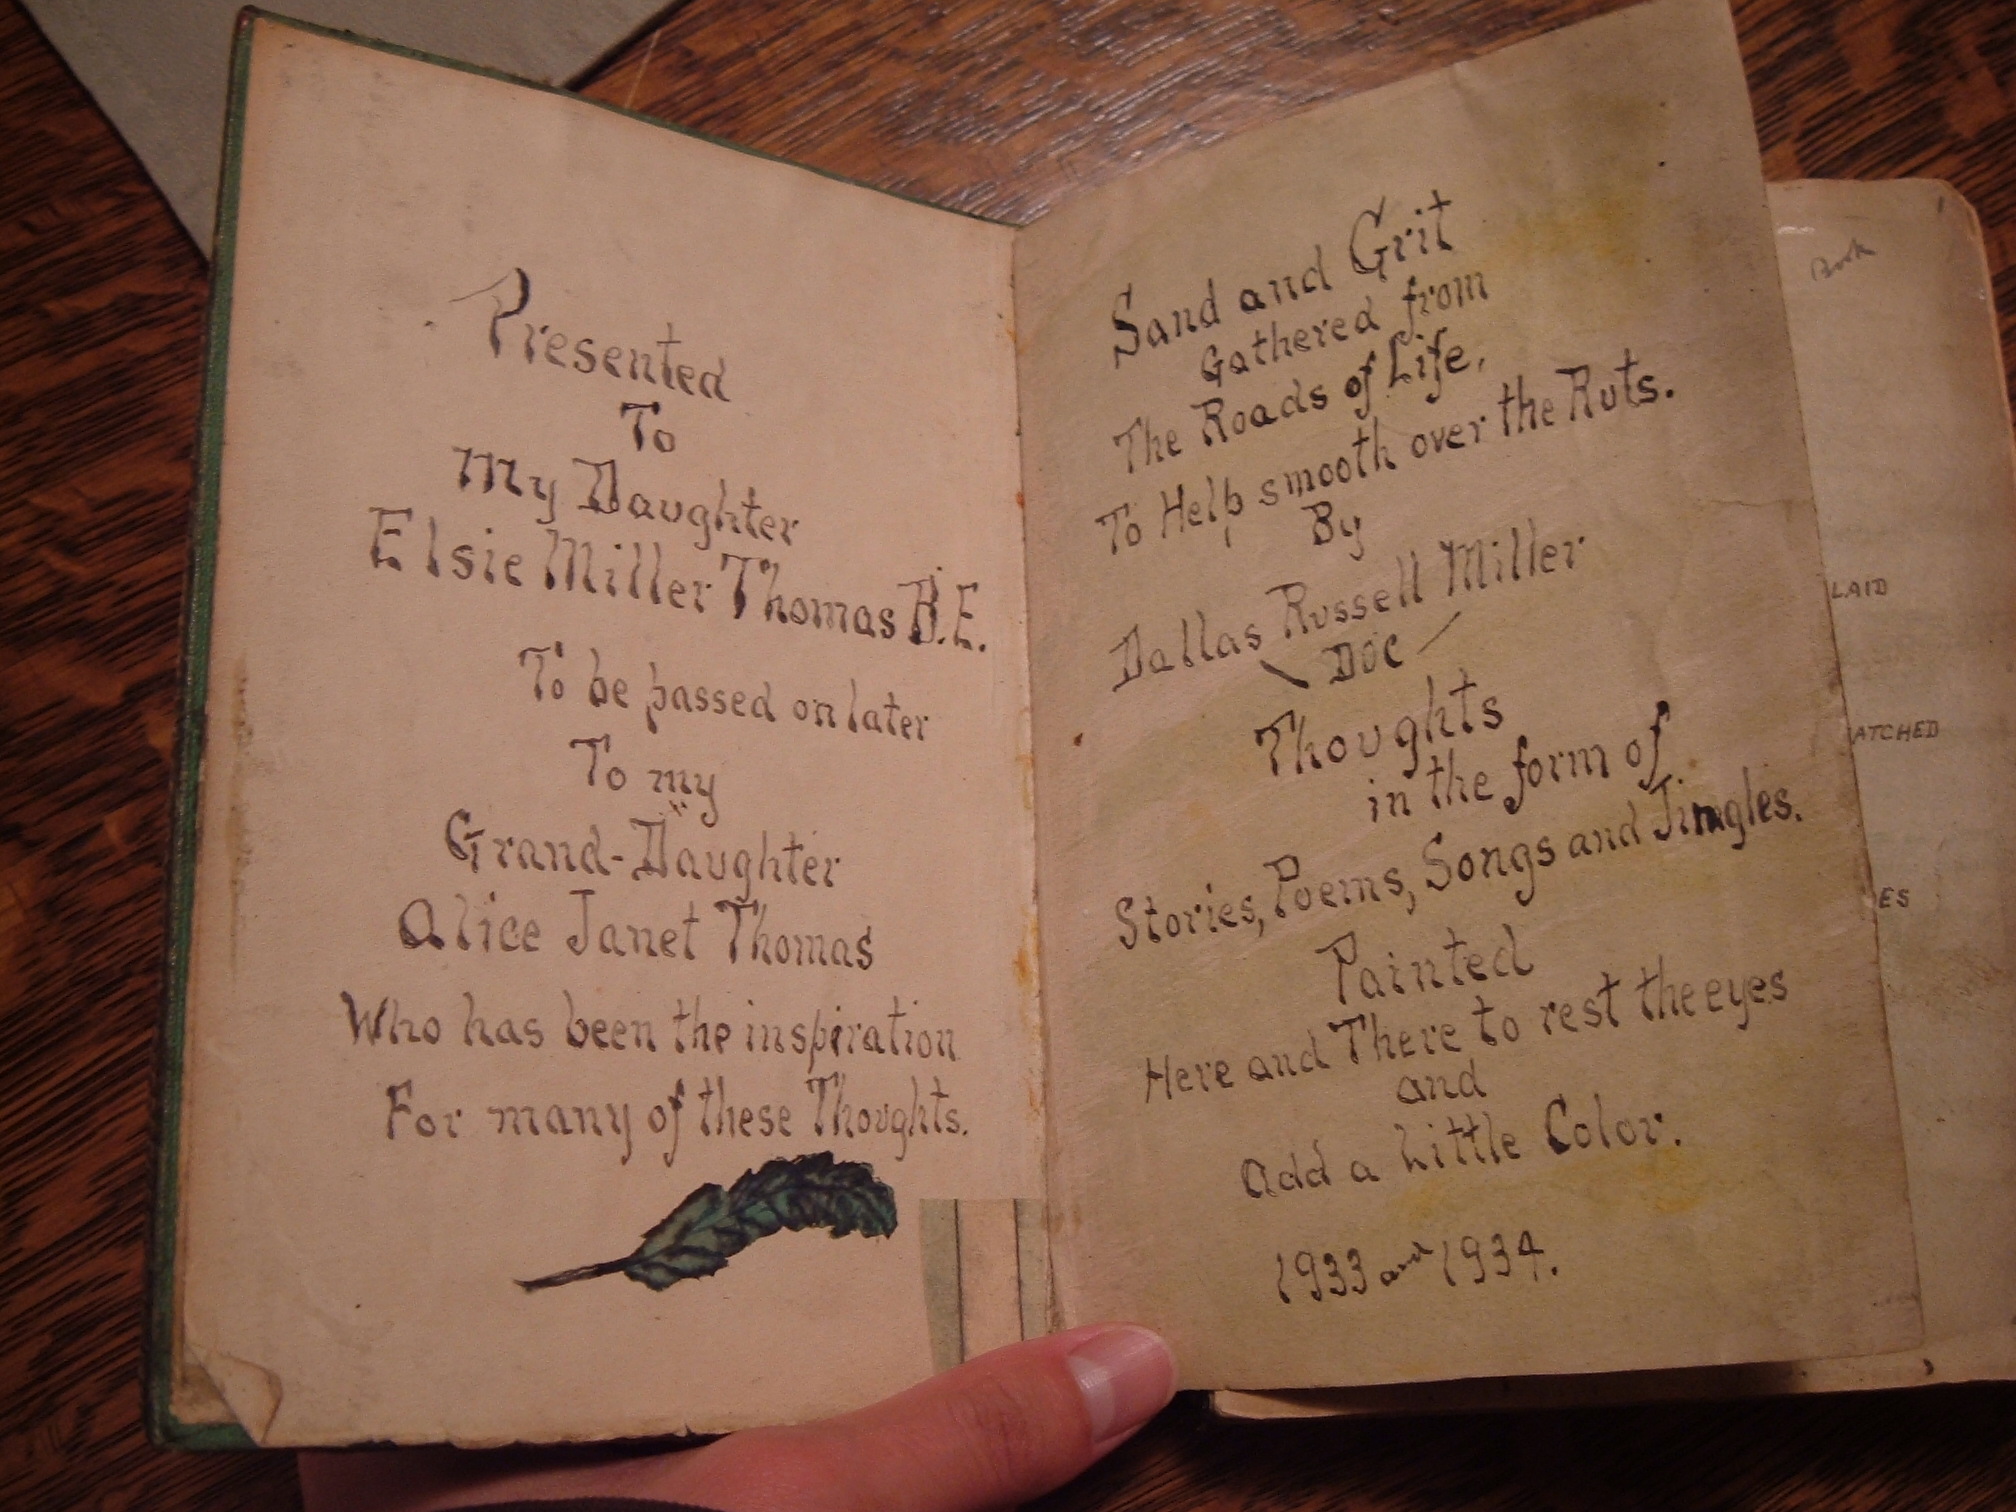 Presented
To
My Daughter
Elsie Miller Thomas B.E.
To be passed on later
To my
Grand-Daughter
Alice Janet Thomas
Who has been the inspiration
For many of these Thoughts.
Sand and Grit
Gathered from
The Roads of Life,
To Help smooth over the Ruts.
By
Dallas Russell Miller
\ Doc /
Thoughts
in the form of
Stories, Poems, Songs and Jingles.
Painted
Here and There to rest the eyes
and
Add a Little Color.
1933 and 1934.
Book
LAID
ATCHED
ES